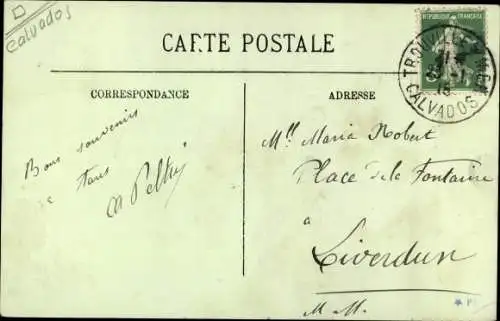 Calvados
REPUBLIQUE FRANCAISE
TROUVILLE-S-MER
CALVADOS
CARTE POSTALE
CORRESPONDANCE
ADRESSE
Bons souvenirs
à tous
Mlle Maria Robert
Place de la Fontaine
à
Liverdun
M. M.